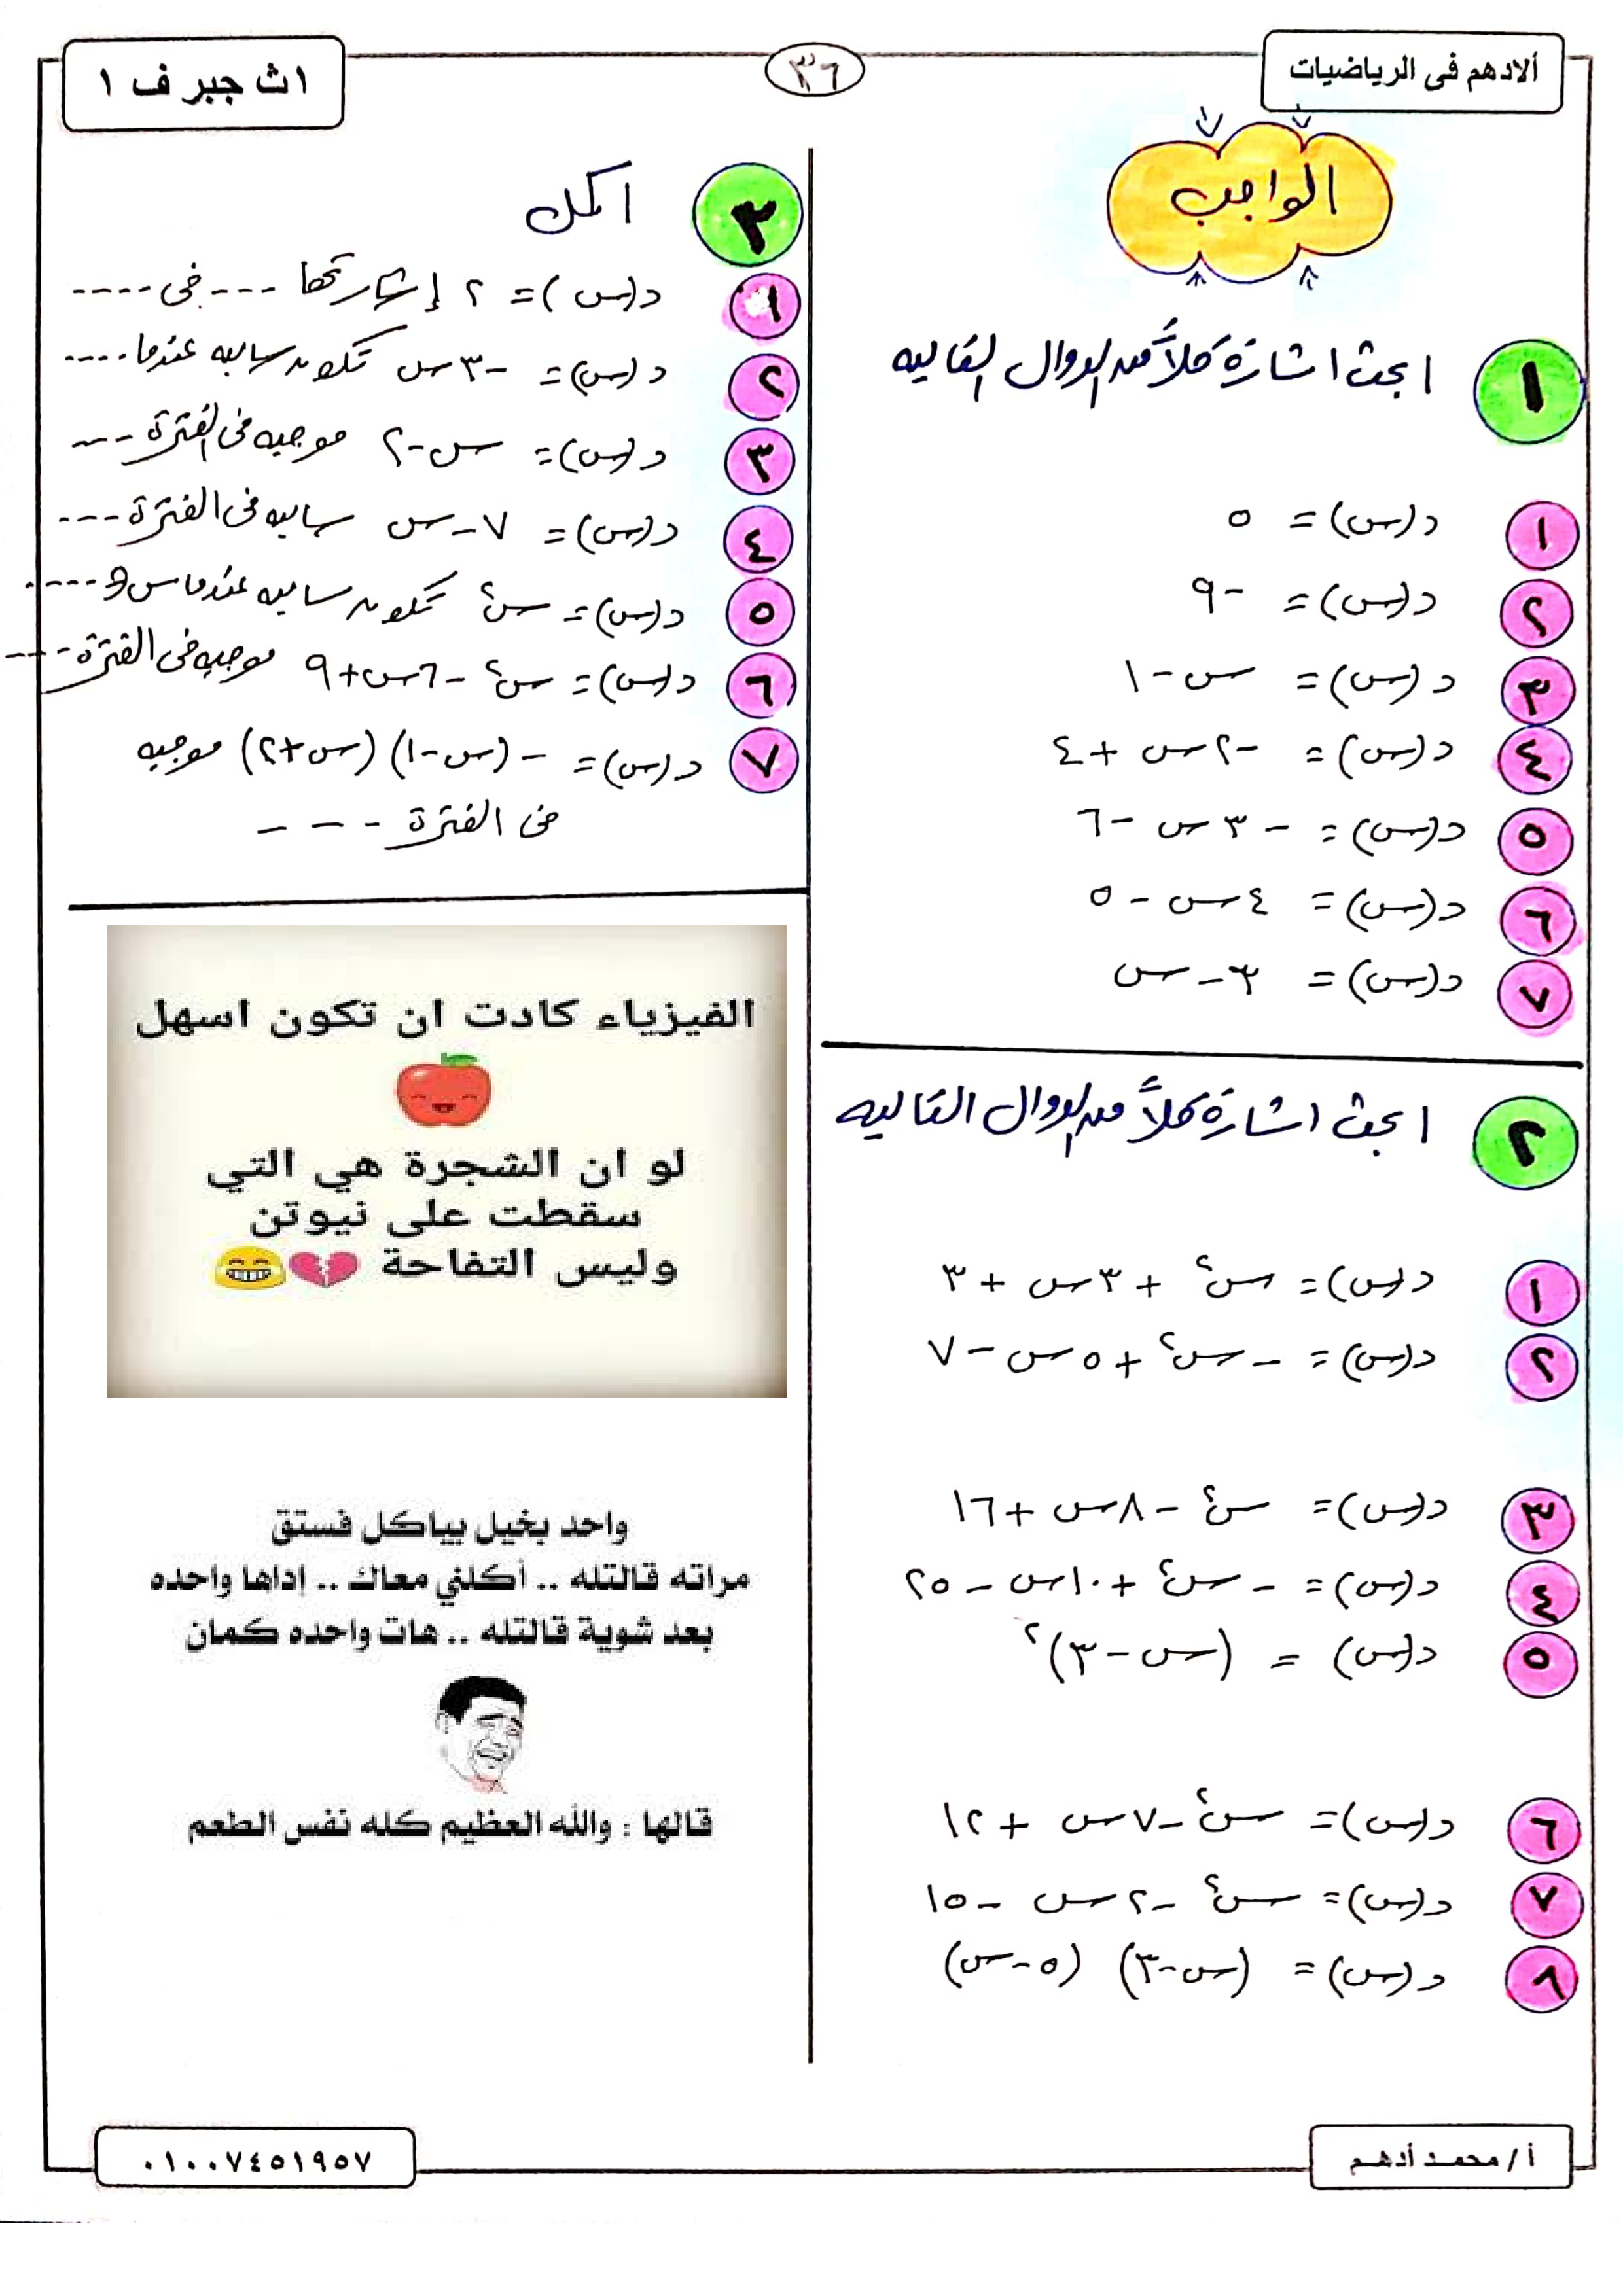 ألادهم فى الرياضيات
٣٦
١ث جبر ف ١
الواجب
١ ابحث اشارة كلاً من الدوال التاليه
١ د(س) = ٥
٢ د(س) = -٩
٣ د(س) = س - ١
٤ د(س) = -٢س + ٤
٥ د(س) = -٣س - ٦
٦ د(س) = ٤س - ٥
٧ د(س) = ٣ - س
٢ ابحث اشارة كلاً من الدوال التاليه
١ د(س) = س² + ٣س + ٣
٢ د(س) = -س² + ٥س - ٧
٣ د(س) = س² - ٨س + ١٦
٤ د(س) = -س² + ١٠س - ٢٥
٥ د(س) = (س - ٣)²
٦ د(س) = س² - ٧س + ١٢
٧ د(س) = س² - ٢س - ١٥
٨ د(س) = (س - ٣) (٥ - س)
٣ اكمل
١ د(س) = ٢ إشارتها --- فى ----
٢ د(س) = -٣س تكون سالبه عندما ----
٣ د(س) = س - ٢ موجبه فى الفترة ---
٤ د(س) = ٧ - س سالبه فى الفترة ---
٥ د(س) = س² تكون سالبه عندما س ∈ ----
٦ د(س) = س² - ٦س + ٩ موجبه فى الفترة ---
٧ د(س) = -(س - ١) (س + ٢) موجبه
فى الفترة ---
الفيزياء كادت ان تكون اسهل
لو ان الشجرة هي التي
سقطت على نيوتن
وليس التفاحة 💔😁
واحد بخيل بياكل فستق
مراته قالتله .. أكلني معاك .. إداها واحده
بعد شوية قالتله .. هات واحده كمان
قالها : والله العظيم كله نفس الطعم
أ / محمد أدهم
٠١٠٠٧٤٥١٩٥٧